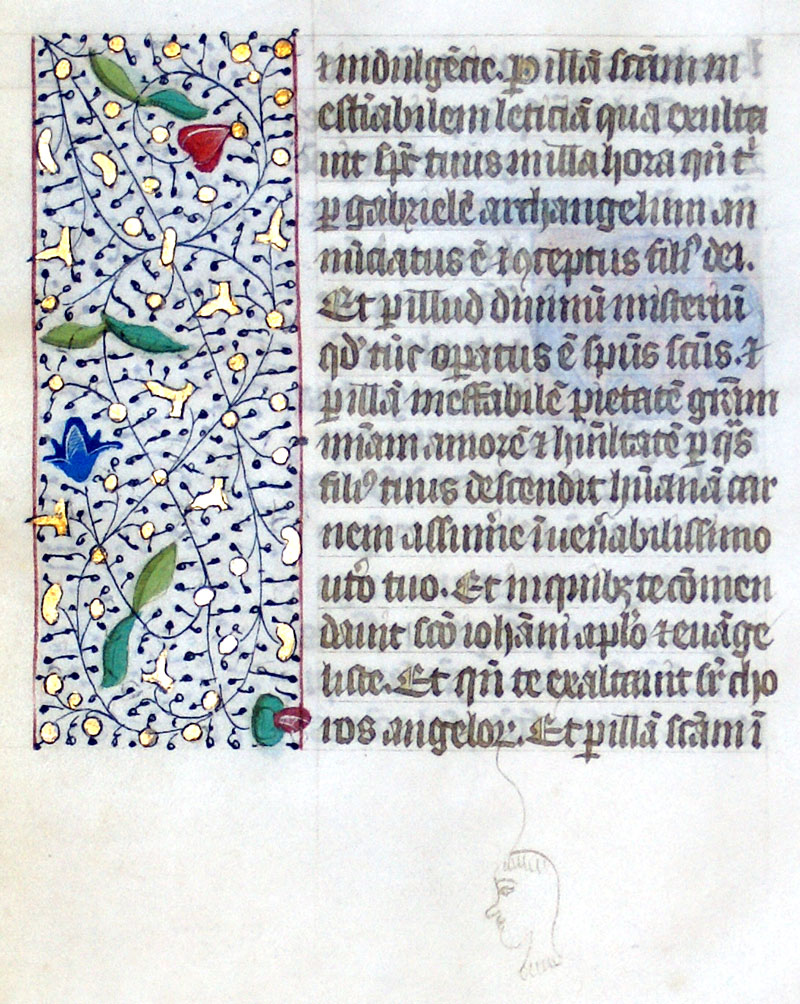 ⁊ indulgēcie. Per illā scām in
estiabilem leticiā qua exulta
uit spc̄ tuus in illa hora qn̄ t'
ꝑ gabrielē archangelum an
nūciatus ē ⁊ ꝯceptus fili⁹ dei.
Et ꝑ illud diuinū misteriū
qd' tūc oꝑatus ē spūs scūs. ⁊
ꝑ illā ineffabilē pietatē grām
miām amorē ⁊ hūiltatē ꝑ q̄s
fili⁹ tuus descendit hūanā car
nem assum̄e ī uen̄abilissimo
ut̄o tuo. Et in quibꝫ te cōmen
dauit scō iohām aplō ⁊ euāge
liste. Et qn̄ te exaltauit sr̄ cho
ros angeloꝝ. Et ꝑ illā scām ī